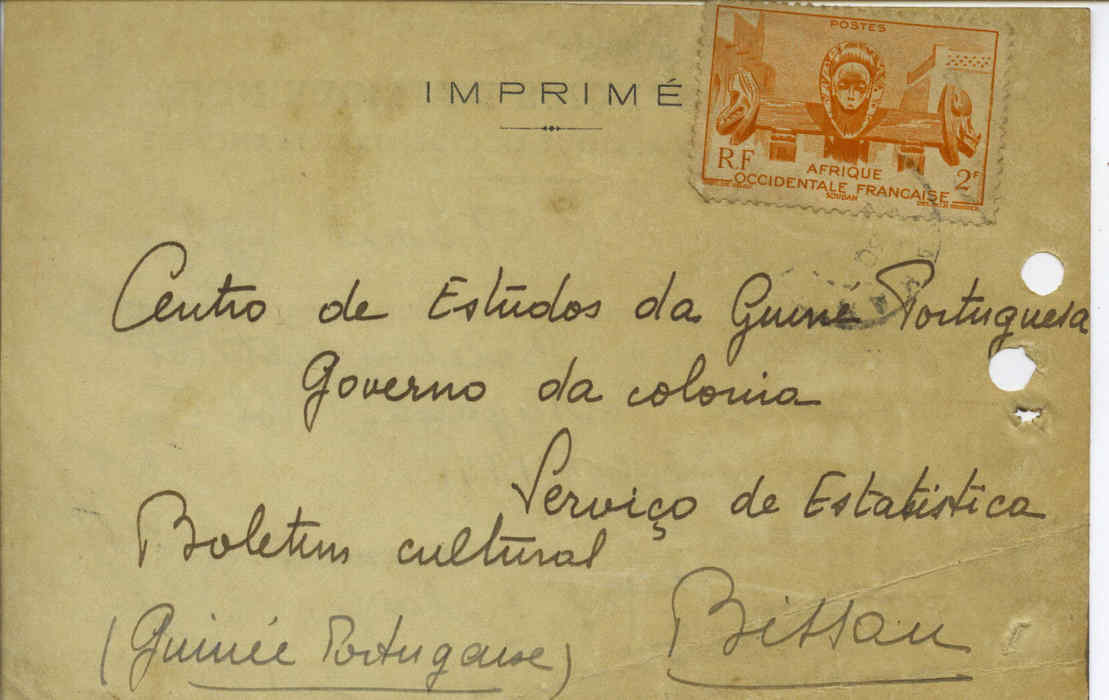 IMPRIMÉ
POSTES
RF
AFRIQUE
OCCIDENTALE FRANÇAISE
2F
SOUDAN
Centro de Estudos da Guiné Portuguesa
Governo da colonia
Serviço de Estatistica
Boletim cultural
(Guinée Portugaise)
Bissau